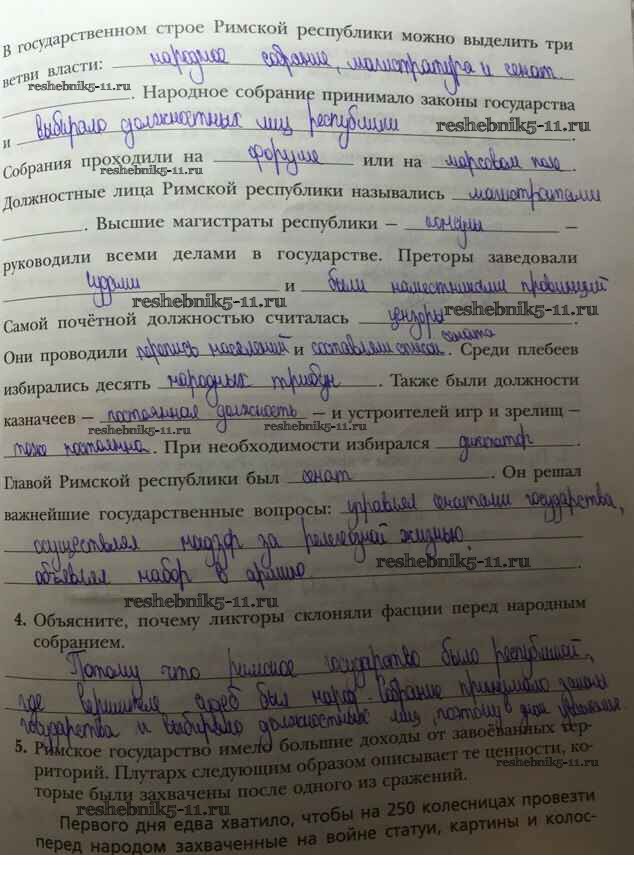 В государственном строе Римской республики можно выделить три
ветви власти: народное собрание, магистратура и сенат
reshebnik5-11.ru
. Народное собрание принимало законы государства
и выбирало должностных лиц республики reshebnik5-11.ru .
Собрания проходили на форуме или на марсовом поле.
reshebnik5-11.ru
Должностные лица Римской республики назывались магистратами
. Высшие магистраты республики – консулы –
руководили всеми делами в государстве. Преторы заведовали
судами и были наместниками провинций
reshebnik5-11.ru
Самой почётной должностью считалась цензоры reshebnik5-11.ru .
сената
Они проводили перепись населений и составляли список . Среди плебеев
избирались десять народных трибун . Также были должности
казначеев – постоянная должность – и устроителей игр и зрелищ –
reshebnik5-11.ru
тоже постоянна . При необходимости избирался диктатор .
Главой Римской республики был сенат . Он решал
важнейшие государственные вопросы: управлял государства,
осуществлял надзор за религиозной жизнью,
объявлял набор в армию. reshebnik5-11.ru .
reshebnik5-11.ru
4. Объясните, почему ликторы склоняли фасции перед народным
собранием.
Потому что римское государство было республикой,
где вершителем судеб был народ. Собрание принимало законы
государства и выбирало должностных лиц, поэтому уважение.
5. Римское государство имело большие доходы от завоёванных тер-
риторий. Плутарх следующим образом описывает те ценности, ко-
reshebnik5-11.ru
торые были захвачены после одного из сражений.
reshebnik5-11.ru
Первого дня едва хватило, чтобы на 250 колесницах провезти
перед народом захваченные на войне статуи, картины и колос-